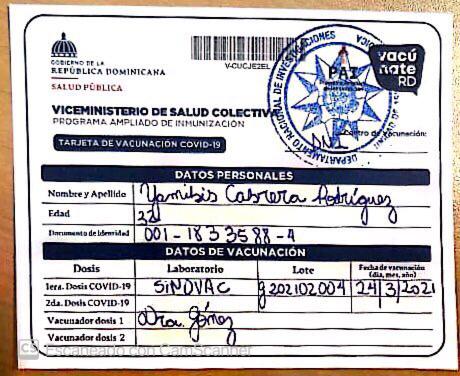 GOBIERNO DE LA
REPÚBLICA DOMINICANA
SALUD PÚBLICA
V-CUCJE2EL
DEPARTAMENTO NACIONAL DE INVESTIGACIONES
PAI
DNI
vacúnate RD
VICEMINISTERIO DE SALUD COLECTIVA
PROGRAMA AMPLIADO DE INMUNIZACIÓN
Centro de Vacunación:
TARJETA DE VACUNACIÓN COVID-19
DATOS PERSONALES
Nombre y Apellido Yamibis Cabrera Rodríguez
Edad 32
Documento de Identidad 001-1833588-4
DATOS DE VACUNACIÓN
Dosis Laboratorio Lote Fecha de vacunación
(día, mes, año)
1era. Dosis COVID-19 SINOVAC g202102004 24/3/2021
2da. Dosis COVID-19
Vacunador dosis 1 Dra. Gómez
Vacunador dosis 2
CS Escaneado con CamScanner